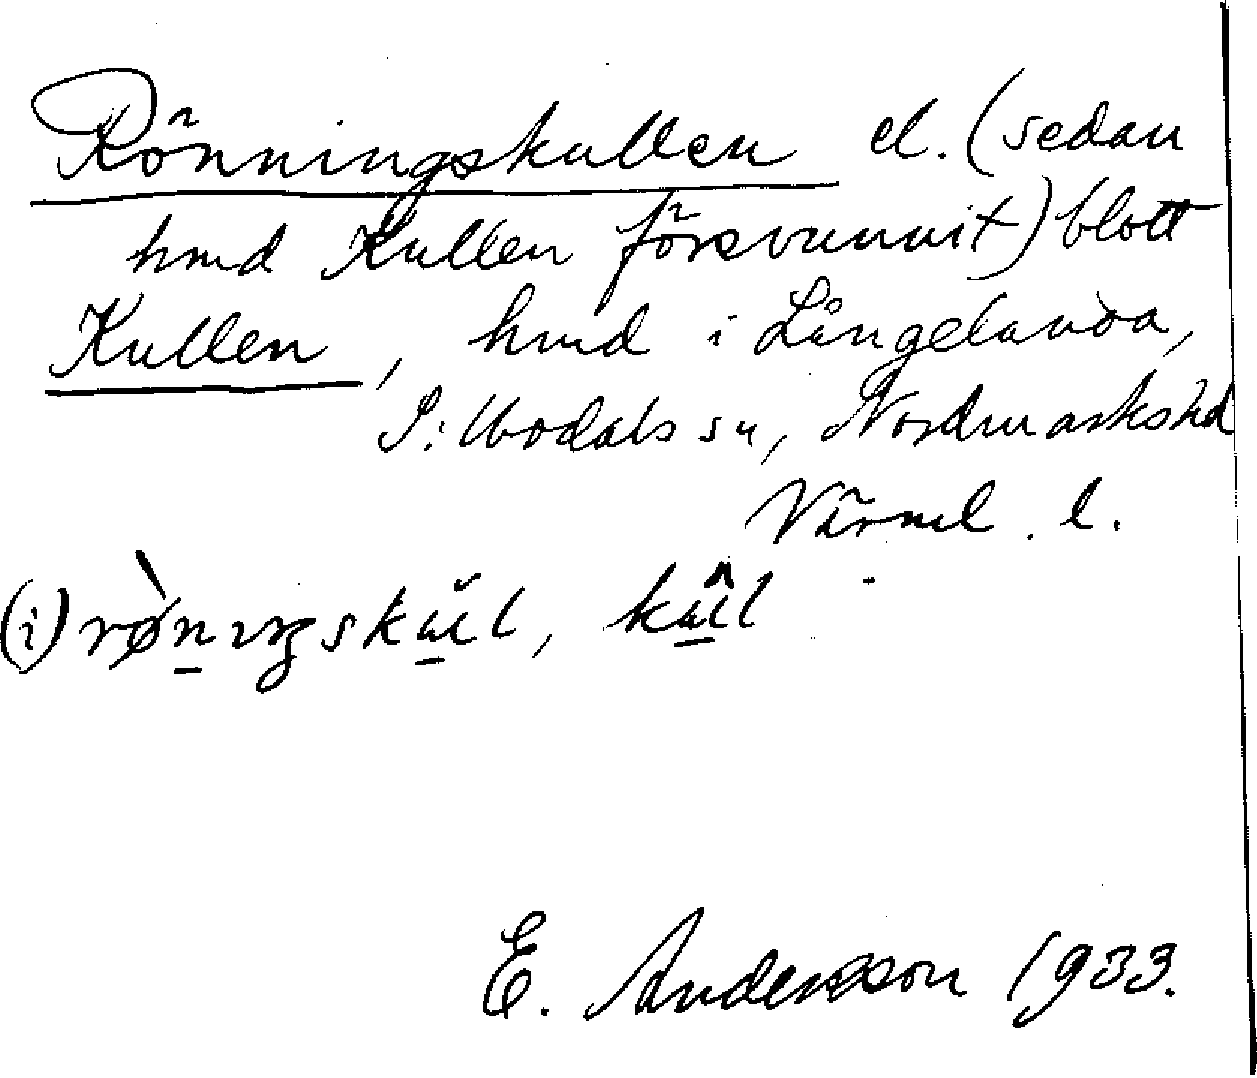 Rönningskullen el. (sedan
hmd Kullen försvunnit) blott
Kullen, hmd i Långelanda,
S: Ubodals sn, Nordmarks hd
Värml. l.
(i) rø̀nɪŋskul, kul
E. Andersson 1933.